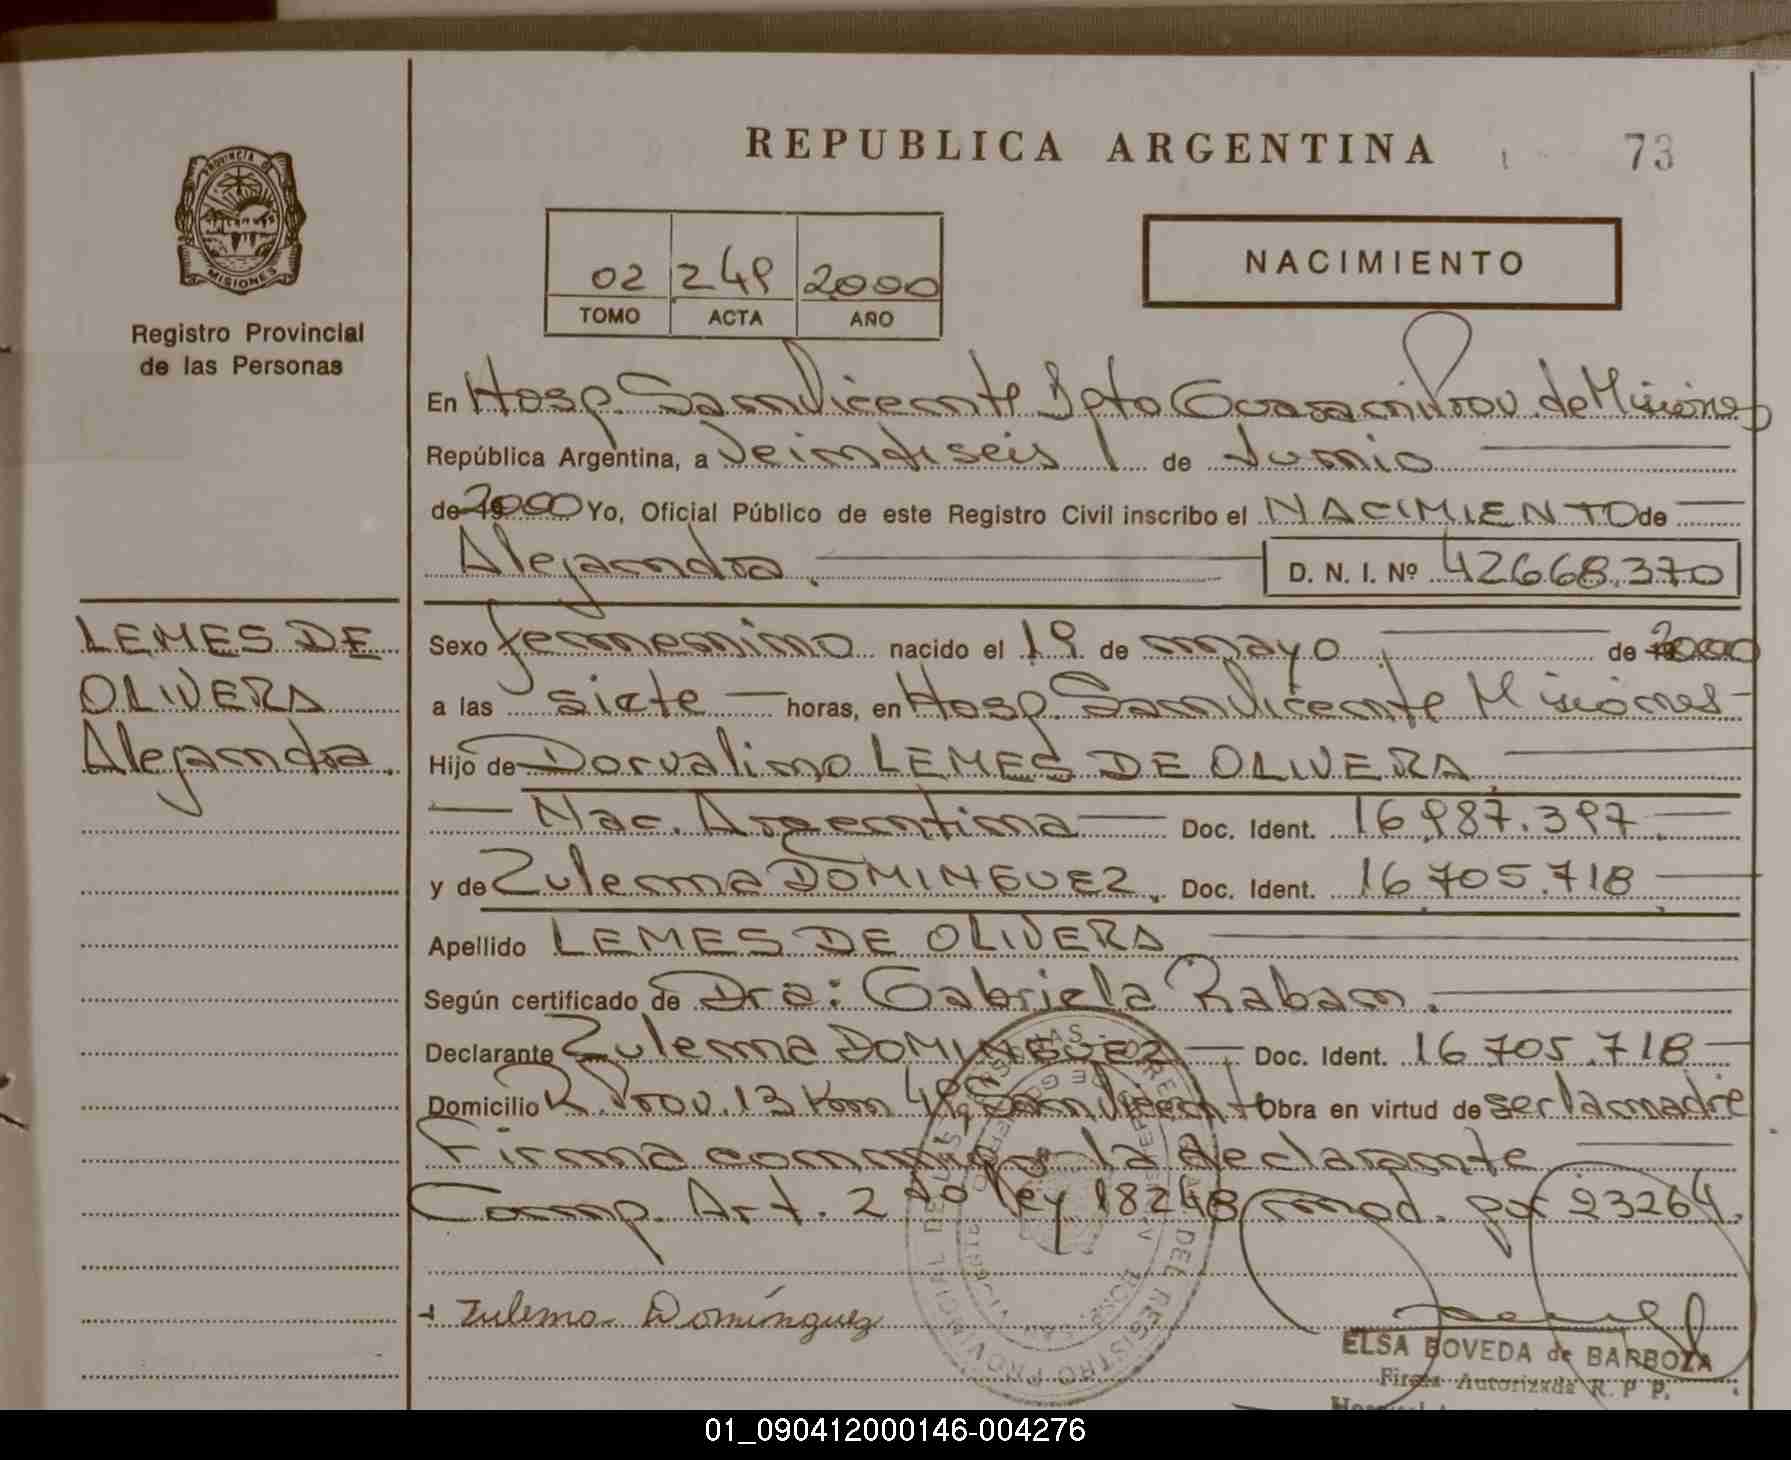 REPUBLICA ARGENTINA
73
PROVINCIA DE
MISIONES
Registro Provincial
de las Personas
02 249 2000
TOMO ACTA AÑO
NACIMIENTO
En Hosp. San Vicente Dpto Guarani Prov. de Misiones
República Argentina, a Veintiseis de Junio
de 2000 Yo, Oficial Público de este Registro Civil inscribo el NACIMIENTO de
Alejandra. D. N. I. Nº 42668.370
LEMES DE
OLIVERA
Alejandra.
Sexo femenino nacido el 19 de mayo de 2000
a las siete horas, en Hosp. San Vicente Misiones
Hijo de Dorvalino LEMES DE OLIVERA
Nac. Argentina Doc. Ident. 16.987.397
y de Zulema DOMINGUEZ. Doc. Ident. 16.705.718
Apellido LEMES DE OLIVERA
Según certificado de Dra: Gabriela Raban.
Declarante Zulema DOMINGUEZ Doc. Ident. 16.705.718
Domicilio R. Prov. 13 Km 49 San Vicente Obra en virtud de ser la madre
Firma conmigo la declarante
Comp. Art. 2 do ley 18248 mod. por 23264.
DEL REGISTRO PROVINCIAL
Zulema Domínguez
ELSA BOVEDA de BARBOZA
Firma Autorizada R. P. P.
01_090412000146-004276